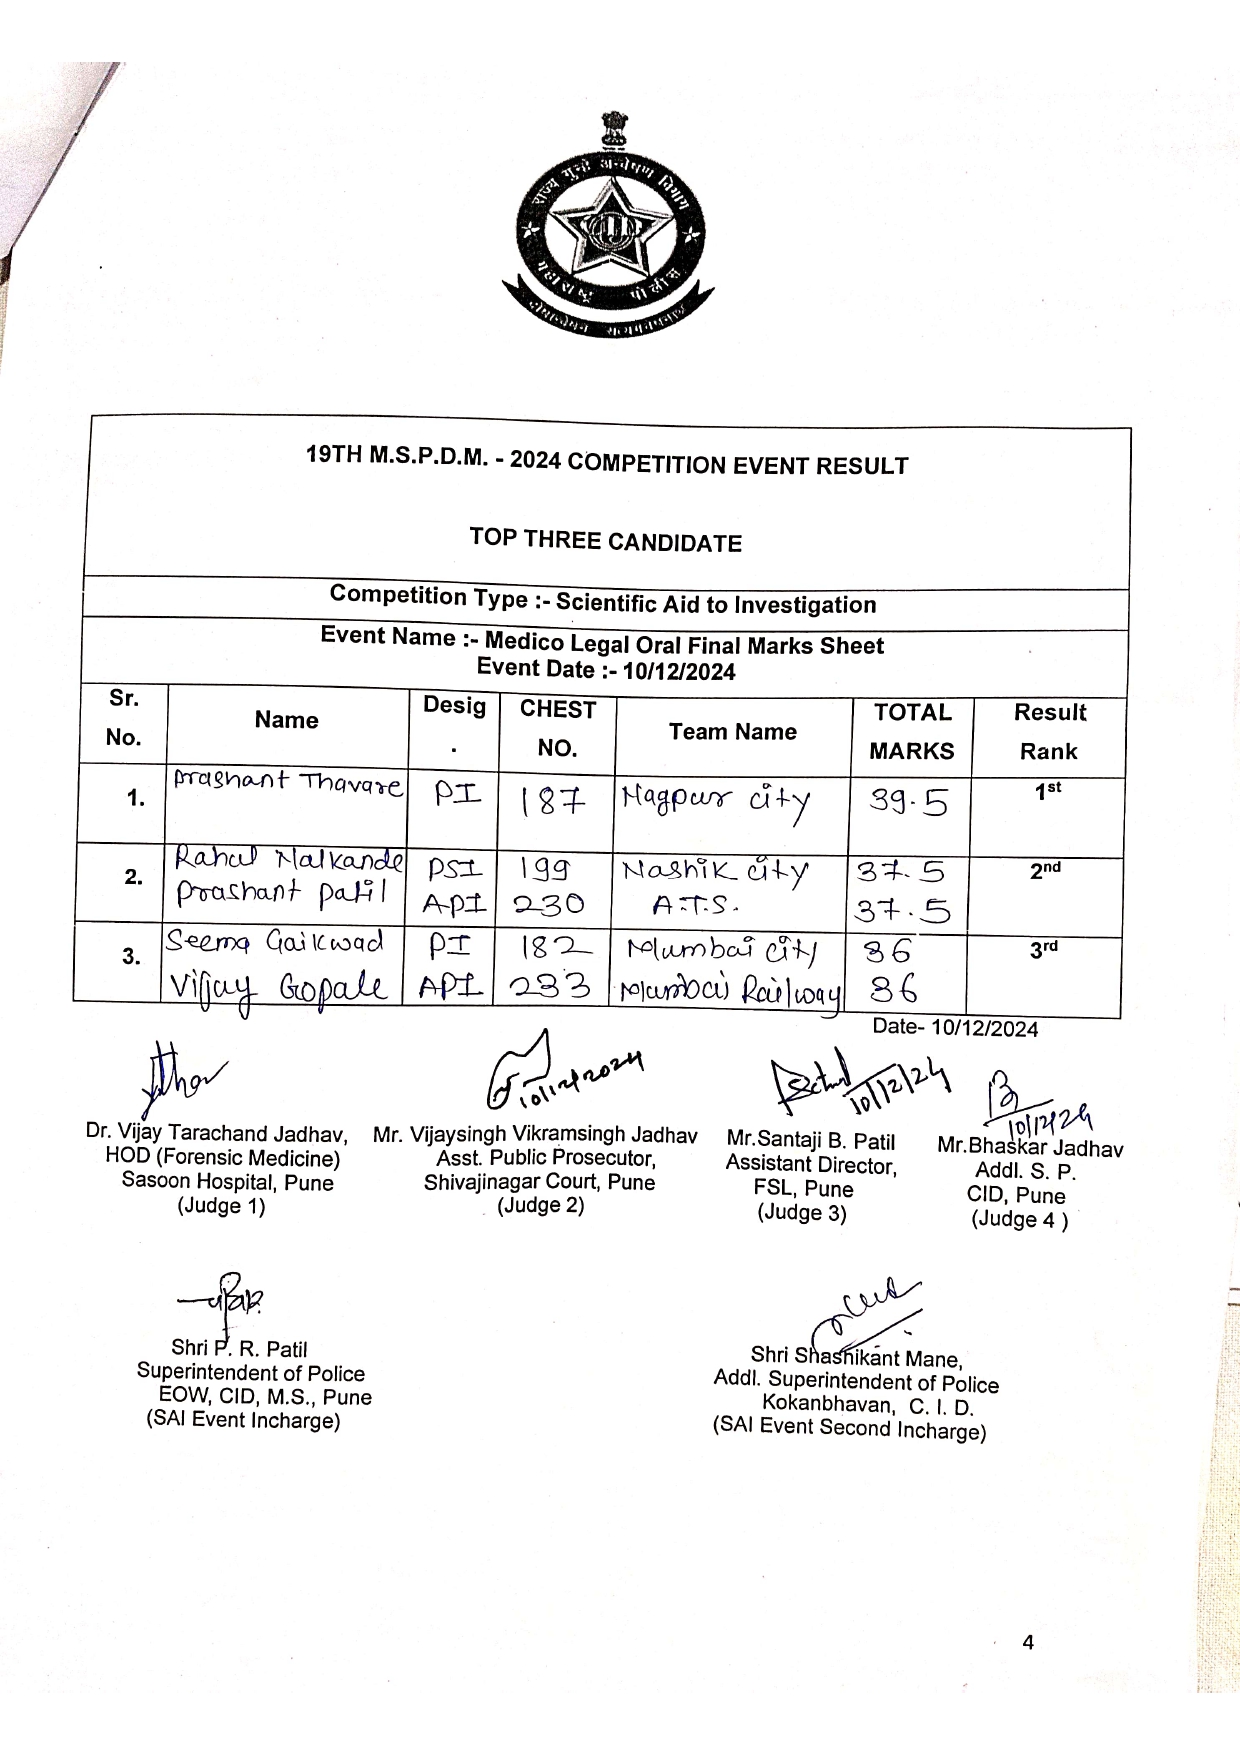 राज्य गुन्हे अन्वेषण विभाग
महाराष्ट्र पोलीस
19TH M.S.P.D.M. - 2024 COMPETITION EVENT RESULT
TOP THREE CANDIDATE
Competition Type :- Scientific Aid to Investigation
Event Name :- Medico Legal Oral Final Marks Sheet
Event Date :- 10/12/2024
Sr. No. Name Desig. CHEST NO. Team Name TOTAL MARKS Result Rank
1. Prashant Thavare PI 187 Nagpur city 39.5 1st
2. Rahul Nalkande PSI 199 Nashik city 37.5 2nd
Prashant Patil API 230 A.T.S. 37.5
3. Seema Gaikwad PI 182 Mumbai city 36 3rd
Vijay Gopale API 233 Mumbai Railway 36
Date- 10/12/2024
10/12/2024 10/12/24 10/12/24
Dr. Vijay Tarachand Jadhav, Mr. Vijaysingh Vikramsingh Jadhav Mr.Santaji B. Patil Mr.Bhaskar Jadhav
HOD (Forensic Medicine) Asst. Public Prosecutor, Assistant Director, Addl. S. P.
Sasoon Hospital, Pune Shivajinagar Court, Pune FSL, Pune CID, Pune
(Judge 1) (Judge 2) (Judge 3) (Judge 4 )
Shri P. R. Patil Shri Shashikant Mane,
Superintendent of Police Addl. Superintendent of Police
EOW, CID, M.S., Pune Kokanbhavan, C. I. D.
(SAI Event Incharge) (SAI Event Second Incharge)
4